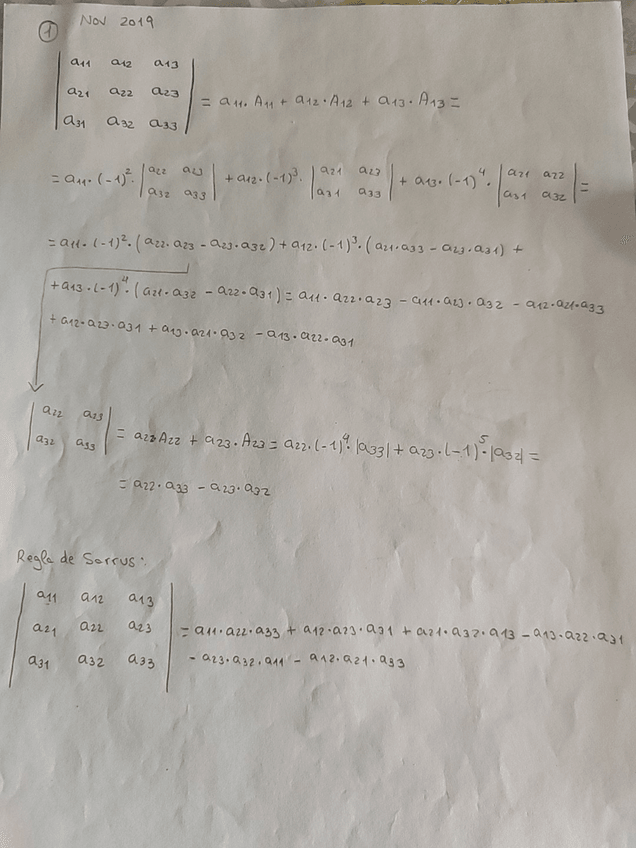 ① Nov 2019
| a11 a12 a13 |
| a21 a22 a23 | = a11·A11 + a12·A12 + a13·A13 =
| a31 a32 a33 |
= a11·(-1)²·| a22 a23 | + a12·(-1)³·| a21 a23 | + a13·(-1)⁴·| a21 a22 | =
| a32 a33 | | a31 a33 | | a31 a32 |
= a11·(-1)²·(a22·a23 - a23·a32) + a12·(-1)³·(a21·a33 - a23·a31) +
+ a13·(-1)⁴·(a21·a32 - a22·a31) = a11·a22·a23 - a11·a23·a32 - a12·a21·a33
+ a12·a23·a31 + a13·a21·a32 - a13·a22·a31
| a22 a23 |
| a32 a33 | = a22 A22 + a23·A23 = a22·(-1)⁴·|a33| + a23·(-1)⁵·|a32| =
= a22·a33 - a23·a32
Regla de Sarrus:
| a11 a12 a13 |
| a21 a22 a23 | = a11·a22·a33 + a12·a23·a31 + a21·a32·a13 - a13·a22·a31
| a31 a32 a33 | - a23·a32·a11 - a12·a21·a33